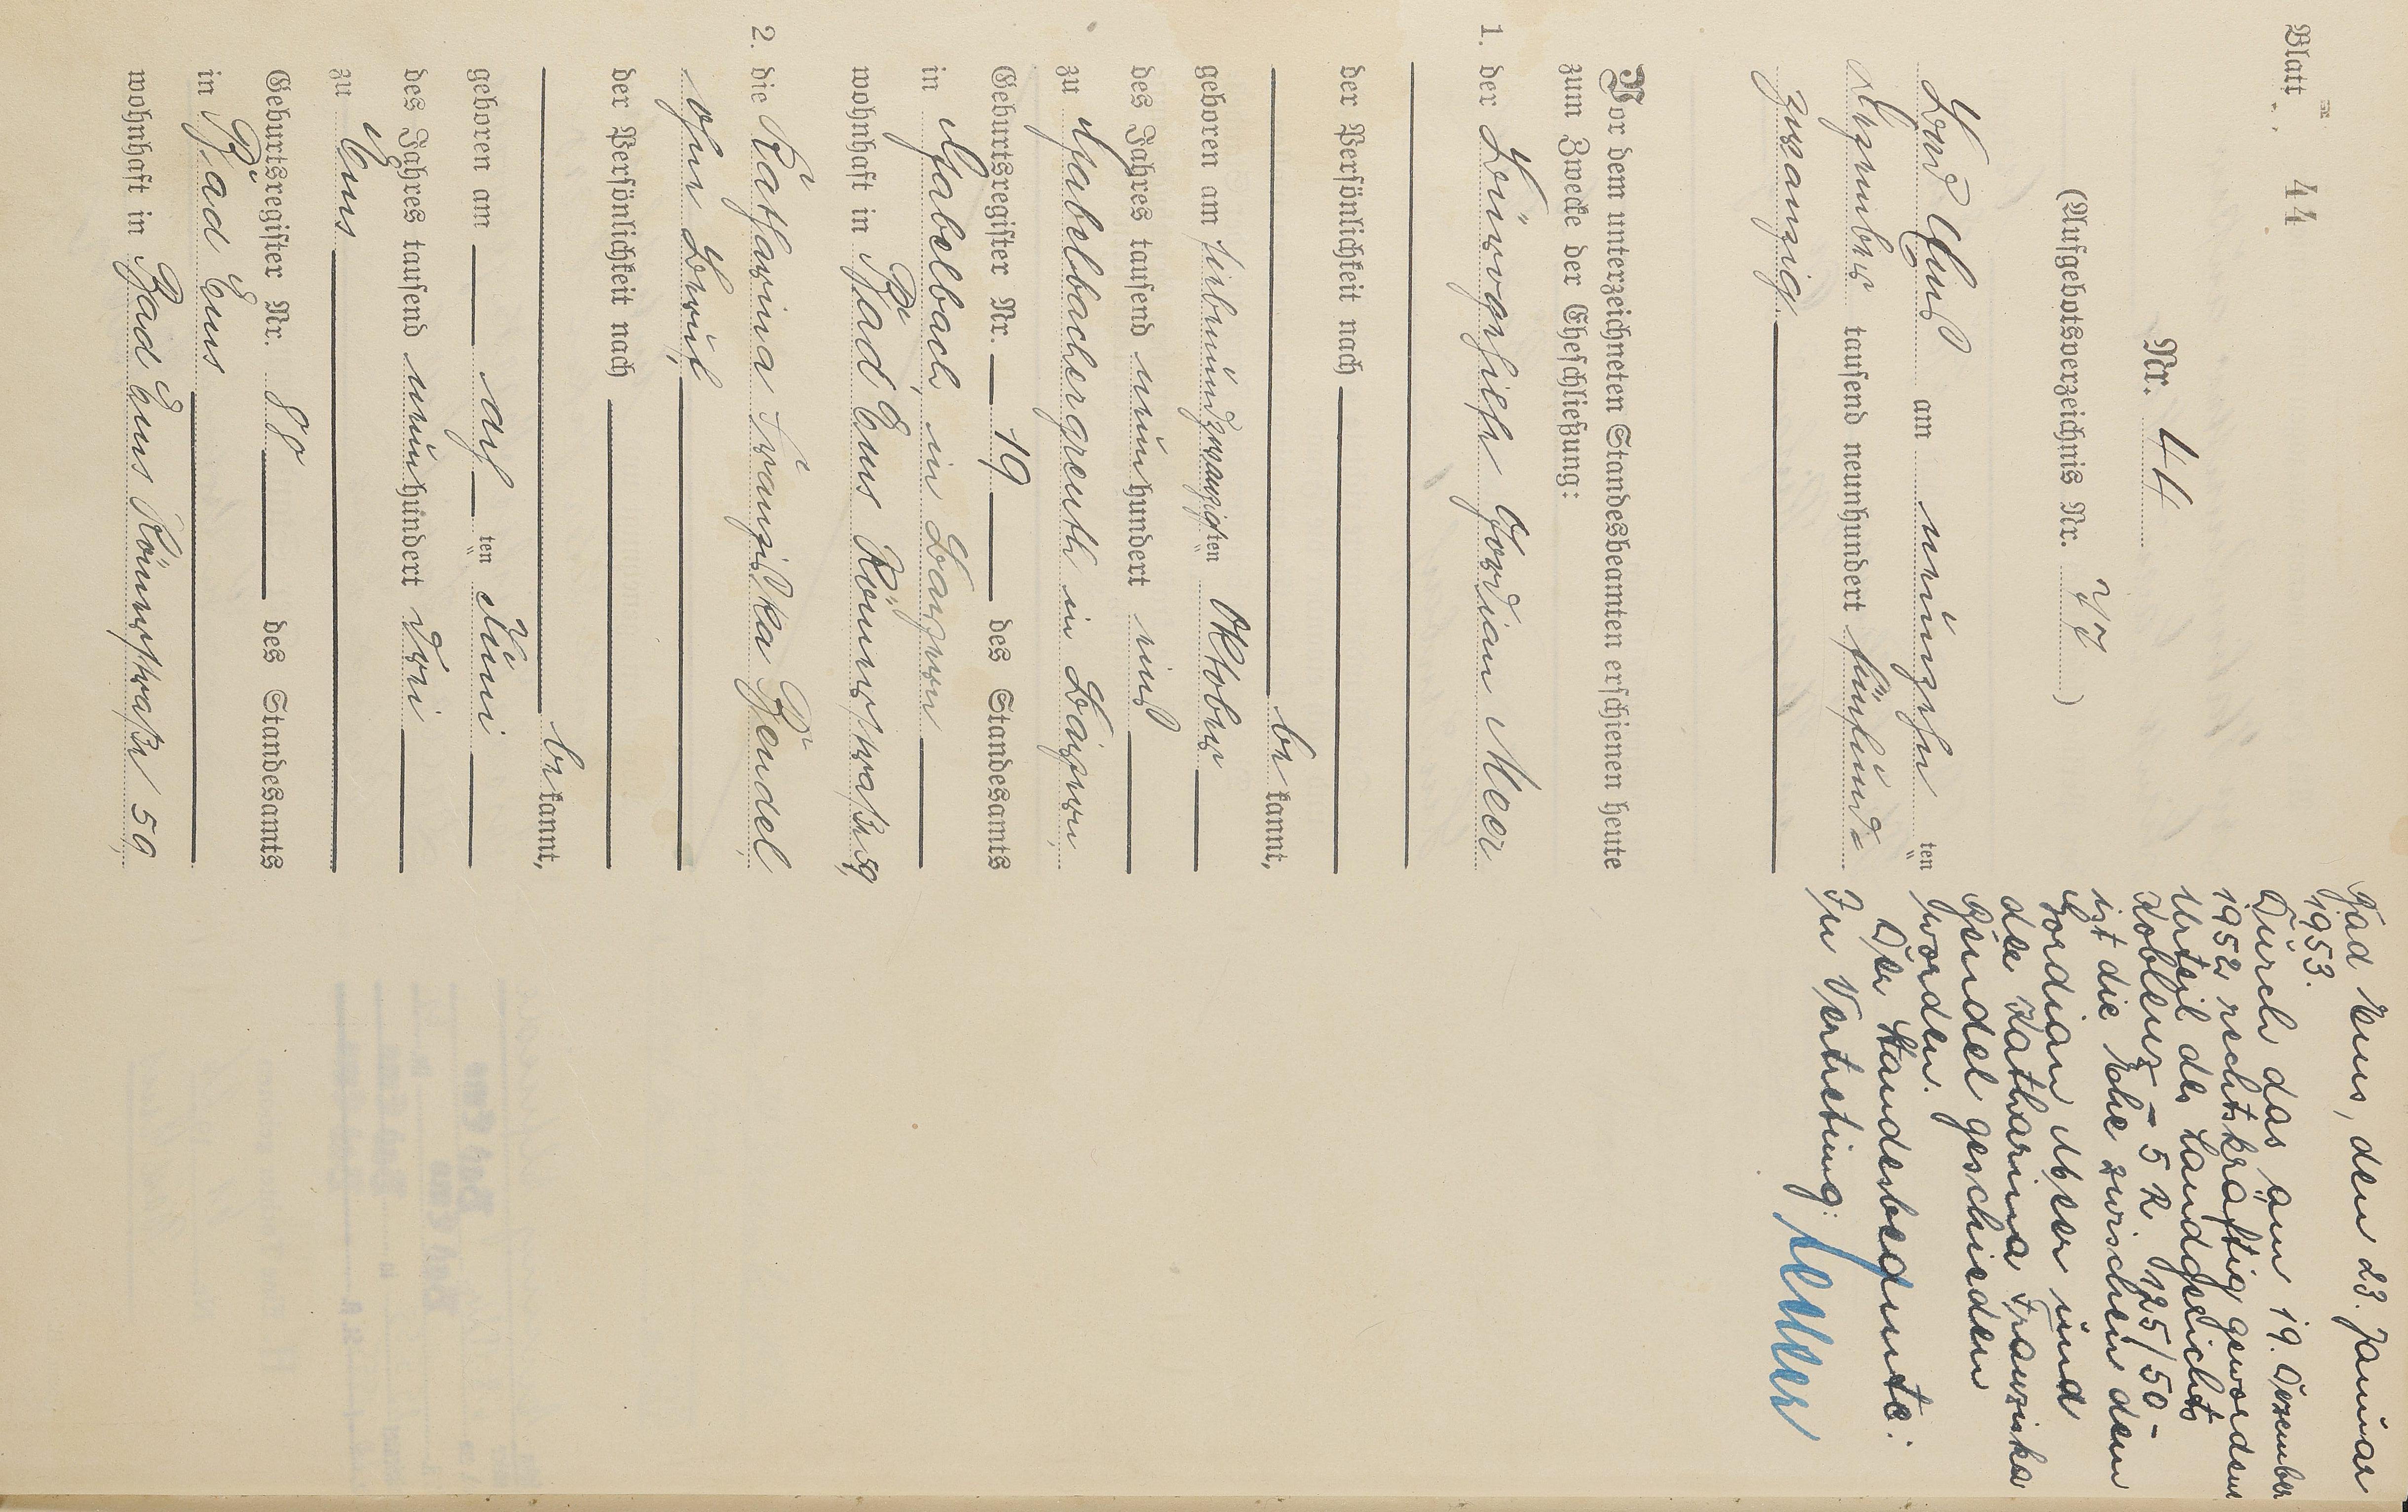 Blatt 44
Nr. 44
(Aufgebotsverzeichnis Nr. )
Bad Ems am neunzehnten
Dezember tausend neunhundert fünfund=
zwanzig
Vor dem unterzeichneten Standesbeamten erschienen heute
zum Zwecke der Eheschließung:
1. der Gordian Meer
der Persönlichkeit nach
be kannt,
geboren am siebenundzwanzigsten Oktober
des Jahres tausend neunhundert eins
zu Gabelbachergreuth in Bayern,
Geburtsregister Nr. 19 des Standesamts
in Gabelbach in Bayern
wohnhaft in Bad Ems Römerstraße 59,
2. die Katharina Franziska Bendel,
ohne Beruf,
der Persönlichkeit nach
be kannt,
geboren am achten Juni
des Jahres tausend neunhundert drei
zu Ems
Geburtsregister Nr. 88 des Standesamts
in Bad Ems
wohnhaft in Bad Ems Römerstraße 59,
Bad Ems, den 23. Januar
1953.
Durch das am 19. Dezember
1952 rechtskräftig gewordene
Urteil des Landgerichts
Koblenz - 5 R 125/50 -
ist die Ehe zwischen dem
Gordian Meer und
der Katharina Franziska
Bendel geschieden
worden.
Der Standesbeamte:
In Vertretung: